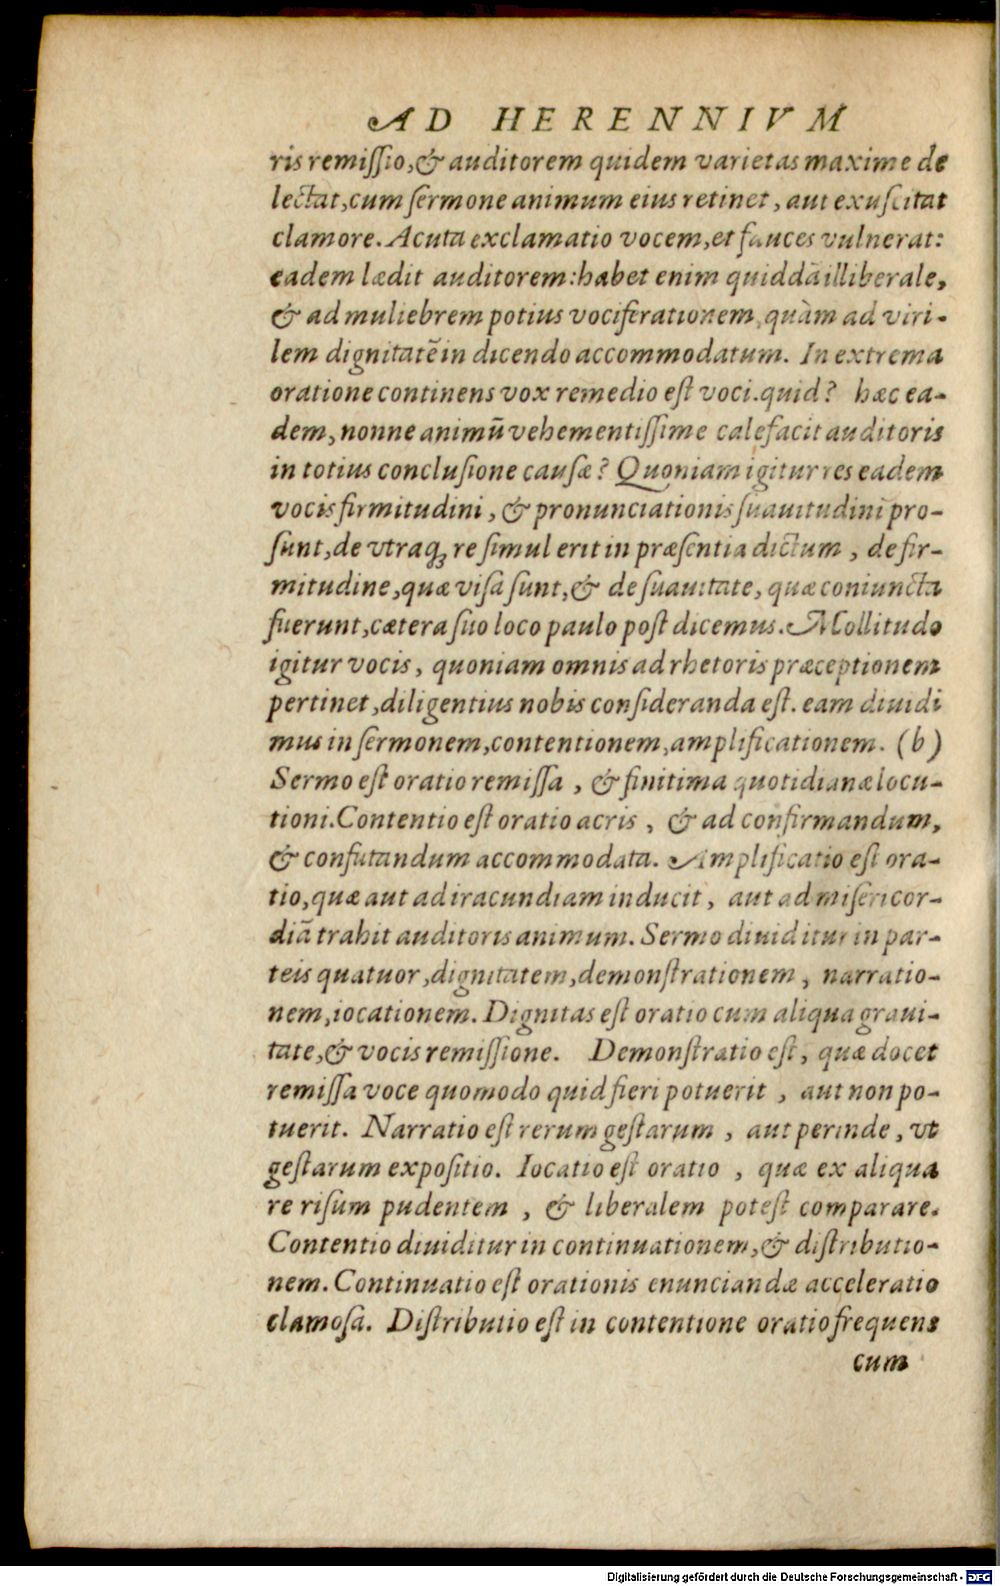 AD HERENNIVM
ris remiſſio, & auditorem quidem varietas maxime de
lectat, cum ſermone animum eius retinet, aut exuſcitat
clamore. Acuta exclamatio vocem, et fauces vulnerat:
eadem lædit auditorem: habet enim quiddā illiberale,
& ad muliebrem potius vociferationem, quàm ad viri-
lem dignitatē in dicendo accommodatum. In extrema
oratione continens vox remedio eſt voci. quid? hæc ea-
dem, nonne animū vehementiſſime calefacit auditoris
in totius concluſione cauſæ? Quoniam igitur res eadem
vocis firmitudini, & pronunciationis ſuauitudini pro-
ſunt, de vtraq; re ſimul erit in præſentia dictum, de fir-
mitudine, quæ viſa ſunt, & de ſuauitate, quæ coniuncta
fuerunt, cætera ſuo loco paulo poſt dicemus. Mollitudo
igitur vocis, quoniam omnis ad rhetoris præceptionem
pertinet, diligentius nobis conſideranda eſt. eam diuidi
mus in ſermonem, contentionem, amplificationem. (b)
Sermo eſt oratio remiſſa, & finitima quotidianæ locu-
tioni. Contentio eſt oratio acris, & ad confirmandum,
& confutandum accommodata. Amplificatio eſt ora-
tio, quæ aut ad iracundiam inducit, aut ad miſericor-
diā trahit auditoris animum. Sermo diuiditur in par-
teis quatuor, dignitatem, demonſtrationem, narratio-
nem, iocationem. Dignitas eſt oratio cum aliqua graui-
tate, & vocis remiſſione. Demonſtratio eſt, quæ docet
remiſſa voce quomodo quid fieri potuerit, aut non po-
tuerit. Narratio eſt rerum geſtarum, aut perinde, vt
geſtarum expoſitio. Iocatio eſt oratio, quæ ex aliqua
re riſum pudentem, & liberalem poteſt comparare.
Contentio diuiditur in continuationem, & diſtributio-
nem. Continuatio eſt orationis enunciandæ acceleratio
clamoſa. Diſtributio eſt in contentione oratio frequens
cum
Digitalisierung gefördert durch die Deutsche Forschungsgemeinschaft - DFG